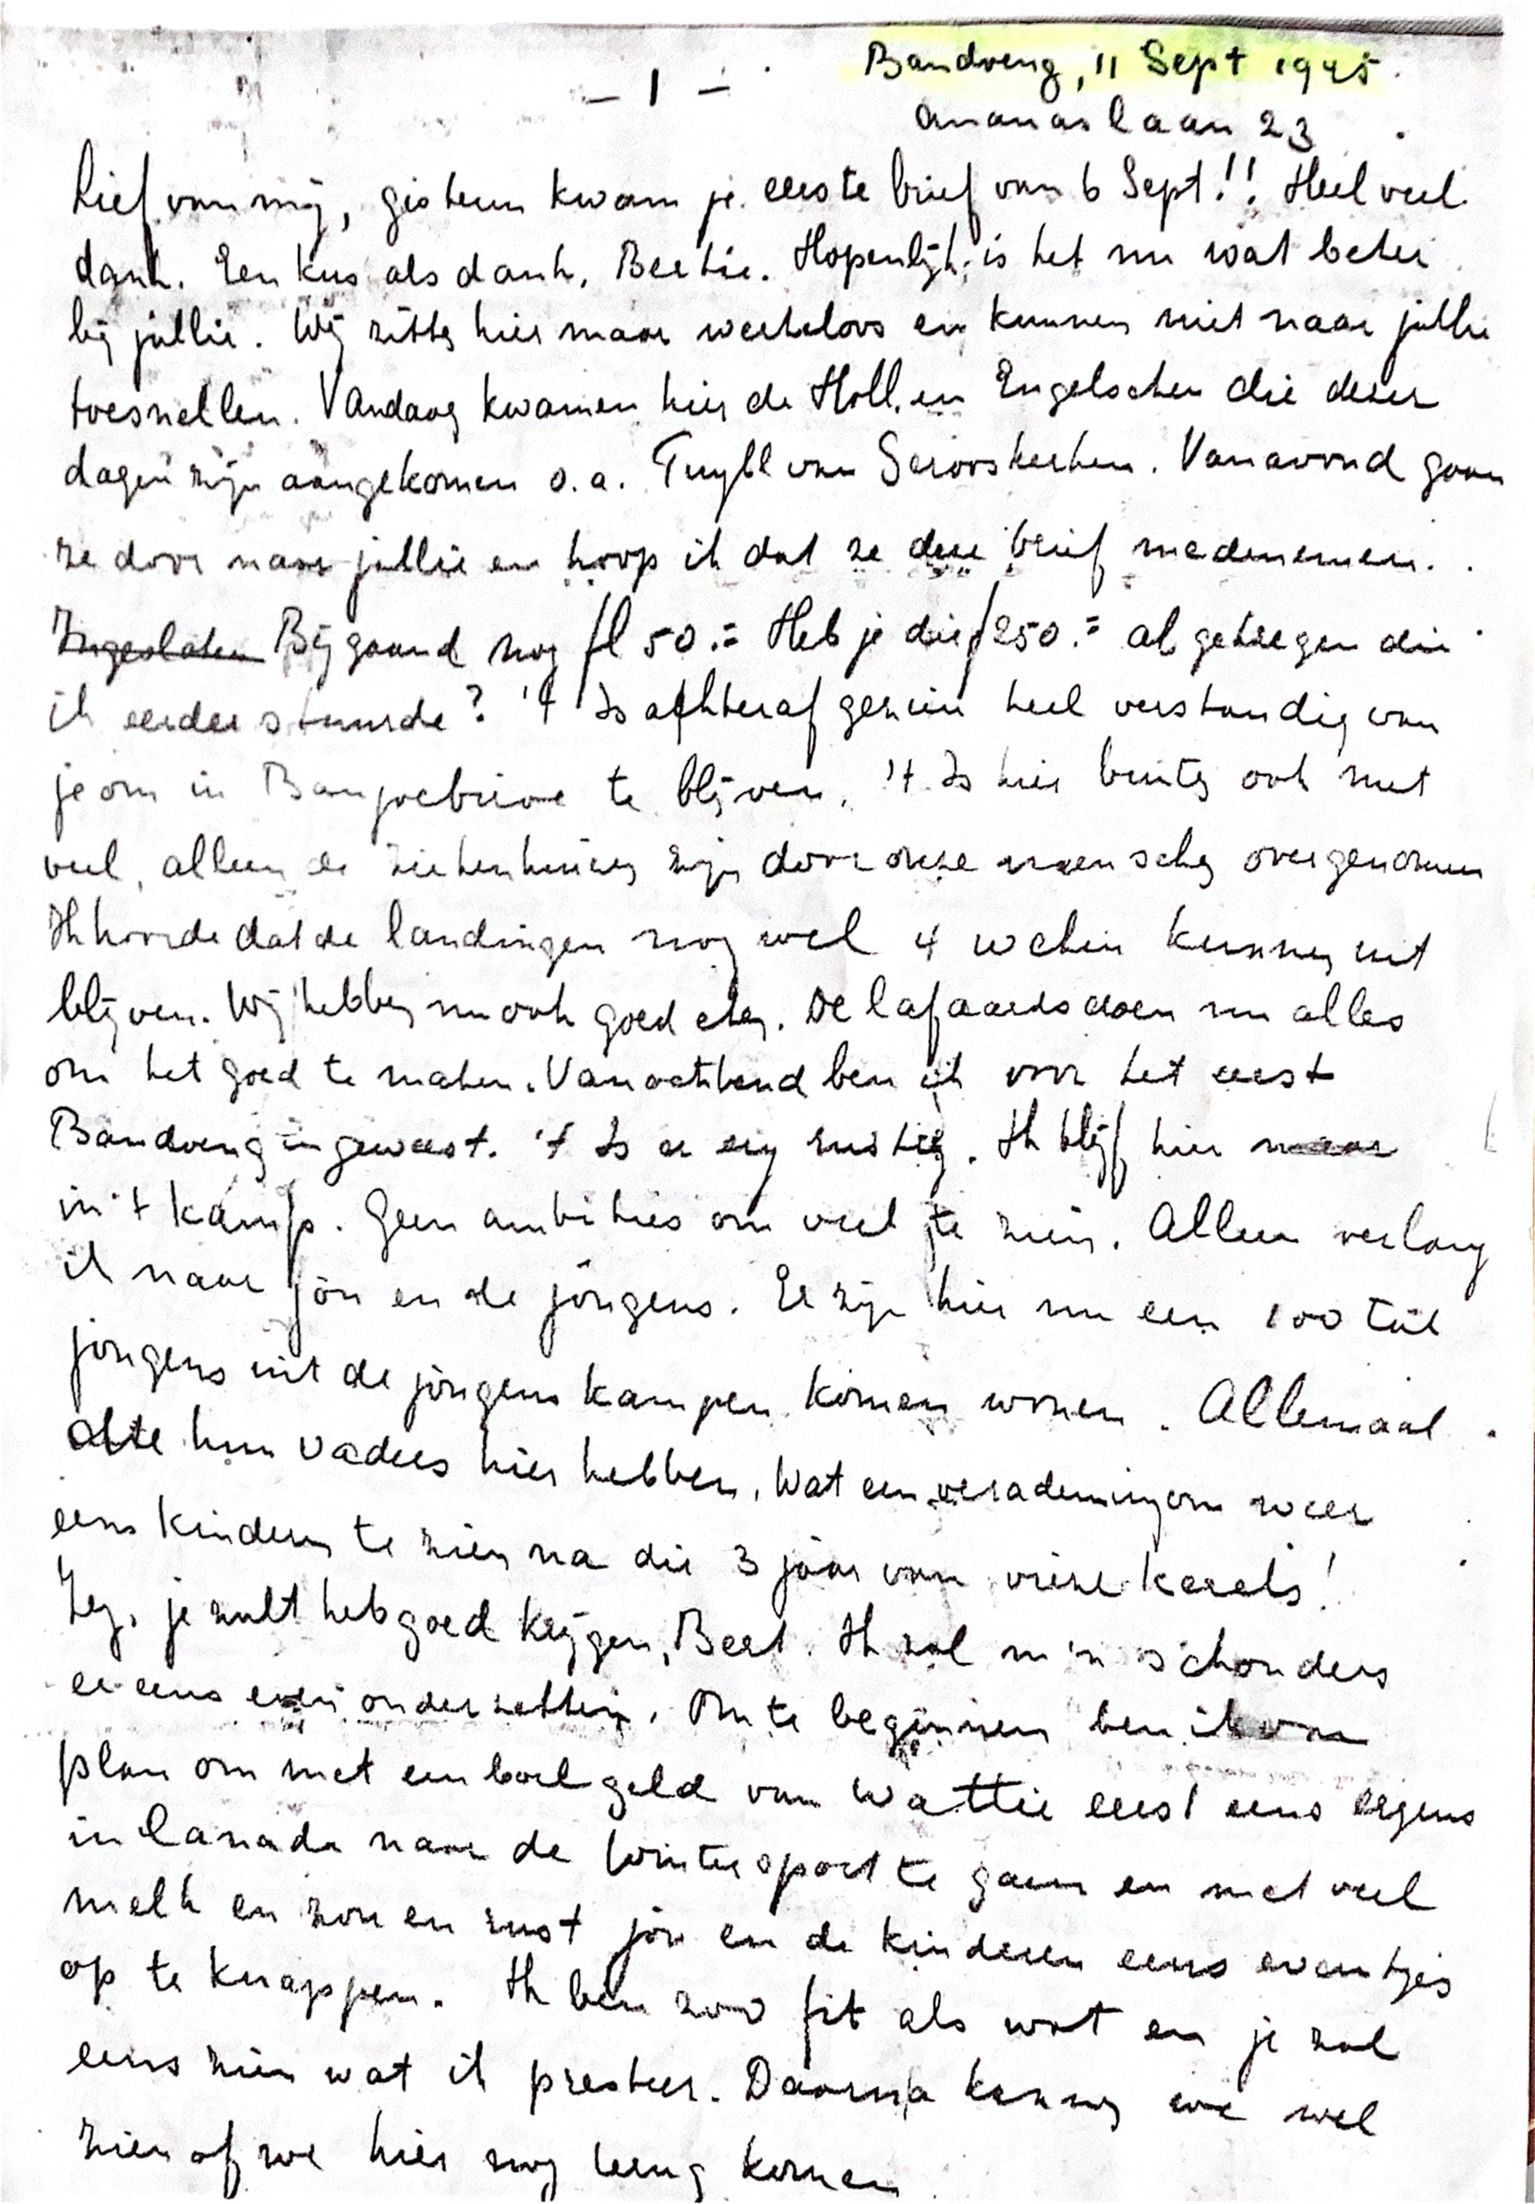 - 1 -
Bandoeng, 11 Sept 1945
Ananaslaan 23
Lief van mij, gisteren kwam je eerste brief van 6 Sept!! Heel veel
dank. Een kus als dank, Bertie. Hopenlijk is het nu wat beter
bij jullie. Wij zitten hier maar werkeloos en kunnen niet naar jullie
toesnellen. Vandaag kwamen hier de Holl. en Engelschen die dezer
dagen zijn aangekomen o.a. Tuyll van Serooskerken. Vanavond gaan
ze door naar jullie en hoop ik dat ze deze brief medenemen.
Ingesloten Bijgaand nog fl 50.= Heb je die f 250.= al gekregen die
ik eerder stuurde? 't Is achteraf gezien heel verstandig van
je om in Banjoebiroe te blijven. 't Is hier buiten ook niet
veel, alleen de ziekenhuizen zijn door onze menschen overgenomen
Ik hoorde dat de landingen nog wel 4 weken kunnen uit
blijven. Wij hebben nu ook goed eten. De lafaards doen nu alles
om het goed te maken. Vanochtend ben ik voor het eerst
Bandoeng in geweest. 't Is er erg rustig. Ik blijf hier maar
in 't kamp. Geen ambities om veel te zien. Alleen verlang
ik naar jou en de jongens. Er zijn hier nu een 100 tal
jongens uit de jongens kampen komen wonen. Allemaal
die hun vaders hier hebben. Wat een verademing om weer
eens kinderen te zien na die 3 jaar van vieze kerels!
Zeg, je zult het goed krijgen, Bert. Ik zal m'n schouders
er eens even onder zetten. Om te beginnen ben ik van
plan om met een boel geld van Wattie eerst eens ergens
in Canada naar de wintersport te gaan en met veel
melk en zon en rust jou en de kinderen eens eventjes
op te knappen. Ik ben zoo fit als wat en je zal
eens zien wat ik presteer. Daarna kunnen we wel
zien of we hier nog terug komen